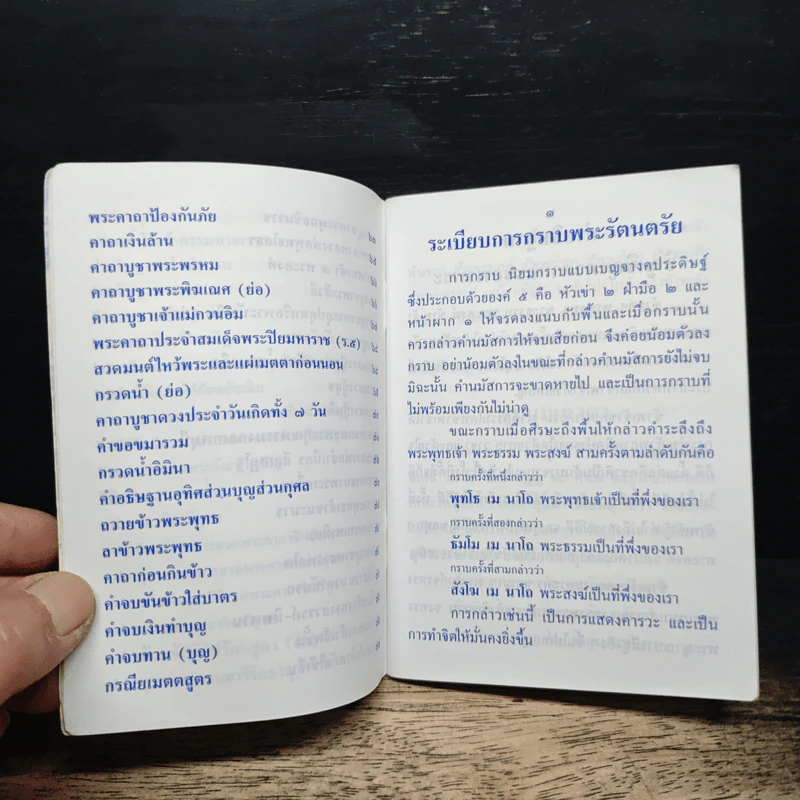 พระคาถาป้องกันภัย
คาถาเงินล้าน
คาถาบูชาพระพรหม
คาถาบูชาพระพิฆเณศ (ย่อ)
คาถาบูชาเจ้าแม่กวนอิม
พระคาถาประจำสมเด็จพระปิยมหาราช (ร.๕)
สวดมนต์ไหว้พระและแผ่เมตตาก่อนนอน
กรวดน้ำ (ย่อ)
คาถาบูชาดวงประจำวันเกิดทั้ง ๗ วัน
คำขอขมารวม
กรวดน้ำอิมินา
คำอธิษฐานอุทิศส่วนบุญส่วนกุศล
ถวายข้าวพระพุทธ
ลาข้าวพระพุทธ
คาถาก่อนกินข้าว
คำจบขันข้าวใส่บาตร
คำจบเงินทำบุญ
คำจบทาน (บุญ)
กรณียเมตตสูตร
๑
ระเบียบการกราบพระรัตนตรัย
การกราบ นิยมกราบแบบเบญจางคประดิษฐ์
ซึ่งประกอบด้วยองค์ ๕ คือ หัวเข่า ๒ ฝ่ามือ ๒ และ
หน้าผาก ๑ ให้จรดลงแนบกับพื้นและเมื่อกราบนั้น
ควรกล่าวคำนมัสการให้จบเสียก่อน จึงค่อยน้อมตัวลง
กราบ อย่าน้อมตัวลงในขณะที่กล่าวคำนมัสการยังไม่จบ
มิฉะนั้น คำนมัสการจะขาดหายไป และเป็นการกราบที่
ไม่พร้อมเพียงกันไม่น่าดู
ขณะกราบเมื่อศีรษะถึงพื้นให้กล่าวคำระลึงถึง
พระพุทธเจ้า พระธรรม พระสงฆ์ สามครั้งตามลำดับกันคือ
กราบครั้งที่หนึ่งกล่าวว่า
พุทโธ เม นาโถ พระพุทธเจ้าเป็นที่พึ่งของเรา
กราบครั้งที่สองกล่าวว่า
ธัมโม เม นาโถ พระธรรมเป็นที่พึ่งของเรา
กราบครั้งที่สามกล่าวว่า
สังโฆ เม นาโถ พระสงฆ์เป็นที่พึ่งของเรา
การกล่าวเช่นนี้ เป็นการแสดงคารวะ และเป็น
การทำจิตให้มั่นคงยิ่งขึ้น